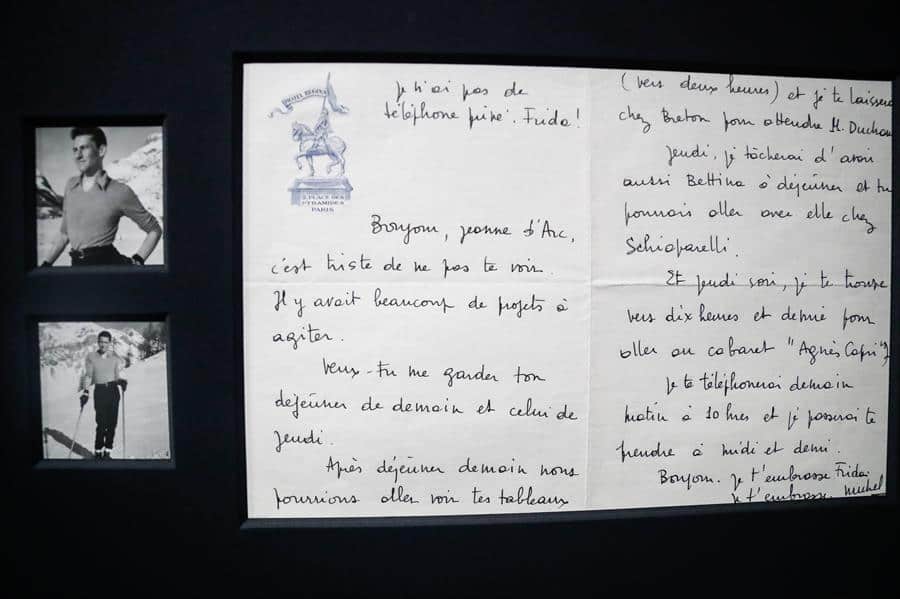 HOTEL REGINA
2, PLACE DES
PYRAMIDES
PARIS
je n'ai pas de
téléphone privé. Frida!
Bonjour, jeanne d'Arc,
c'est triste de ne pas te voir.
Il y avait beaucoup de projets à
agiter.
Veux-tu me garder ton
déjeuner de demain et celui de
jeudi.
Après déjeuner demain nous
pourrions aller voir tes tableaux
(vers deux heures) et je te laisserai
chez Breton pour attendre M. Ducham
Jeudi, je tâcherai d'avoir
aussi Bettina à déjeuner et tu
pourrais aller avec elle chez
Schiaparelli.
Et jeudi soir, je te trouve
vers dix heures et demie pour
aller au cabaret "Agnès Capri"
Je te téléphonerai demain
matin à 10 hres et je passerai te
prendre à midi et demi.
Bonjour. je t'embrasse Frida.
je t'embrasse. Michel